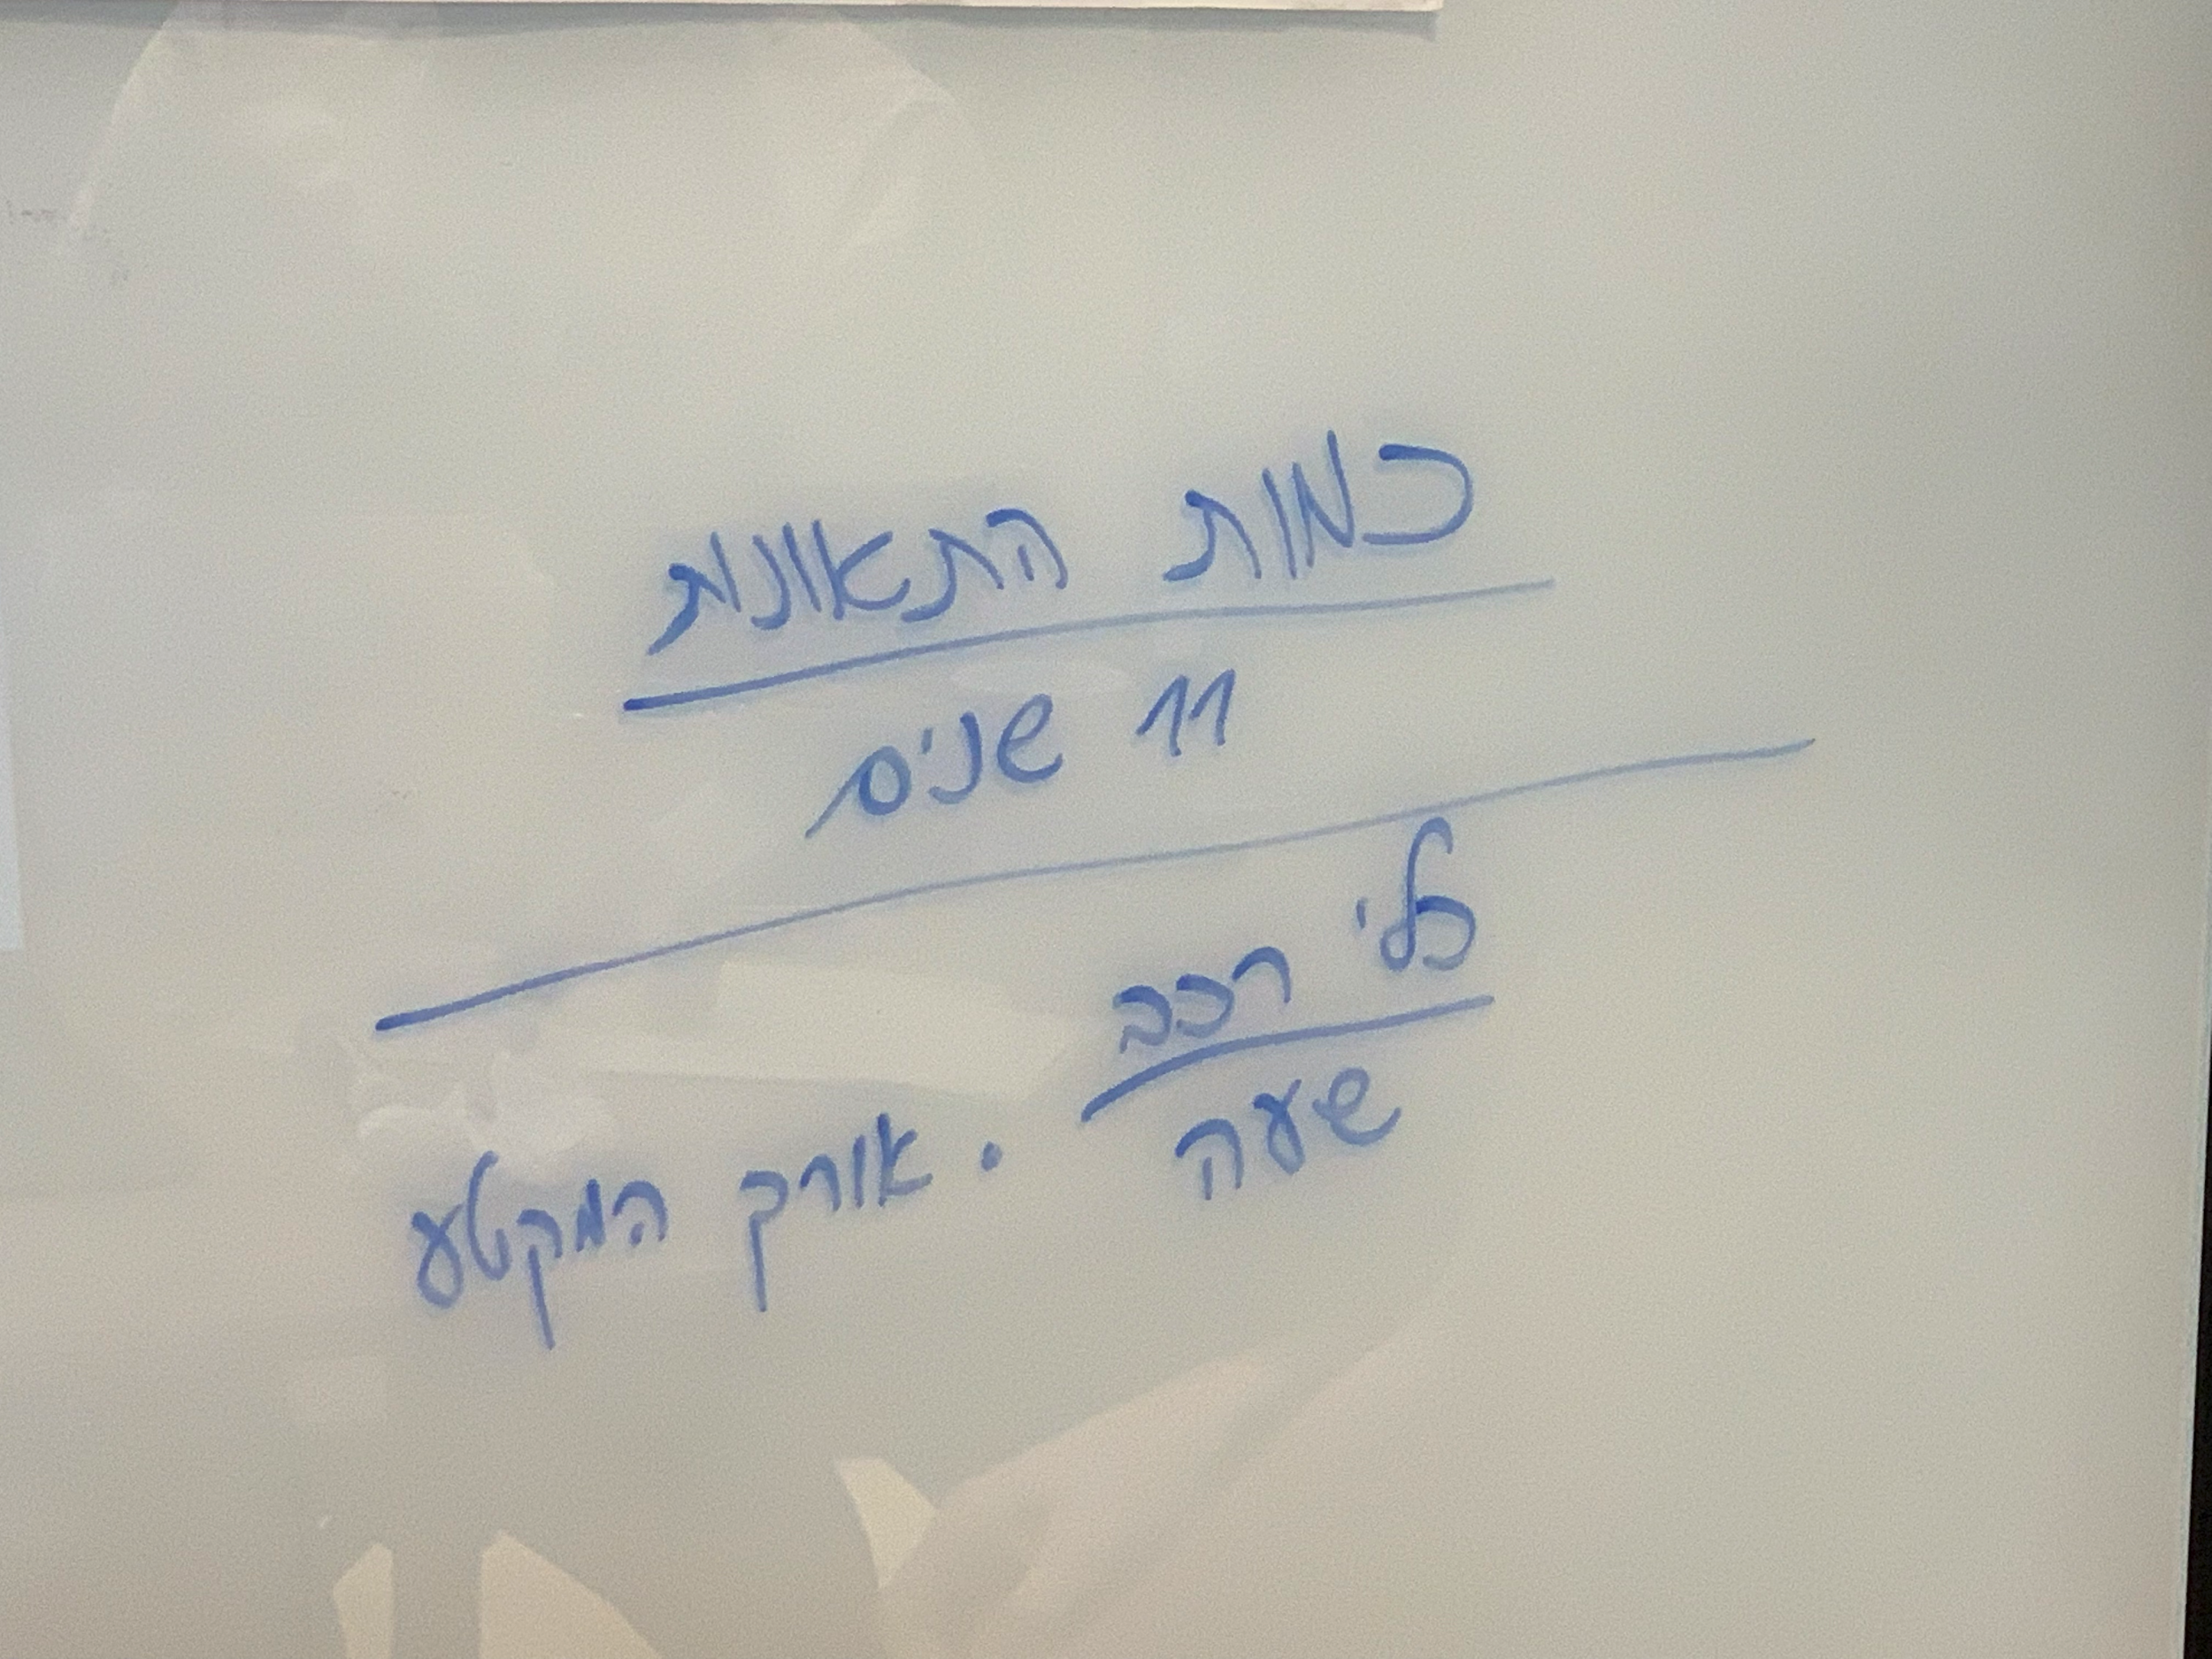 כמות התאונות
11 שנים
כלי רכב
שעה . אורך המקטע